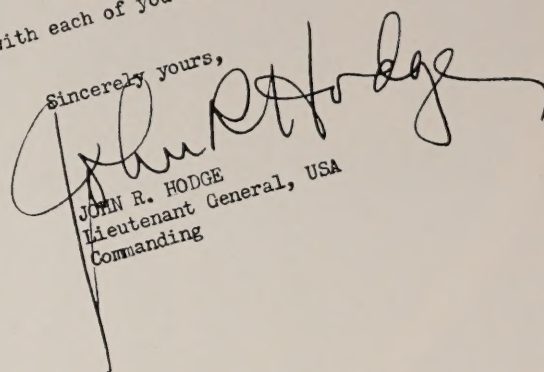 with each of you
Sincerely yours,
John R Hodge
JOHN R. HODGE
Lieutenant General, USA
Commanding